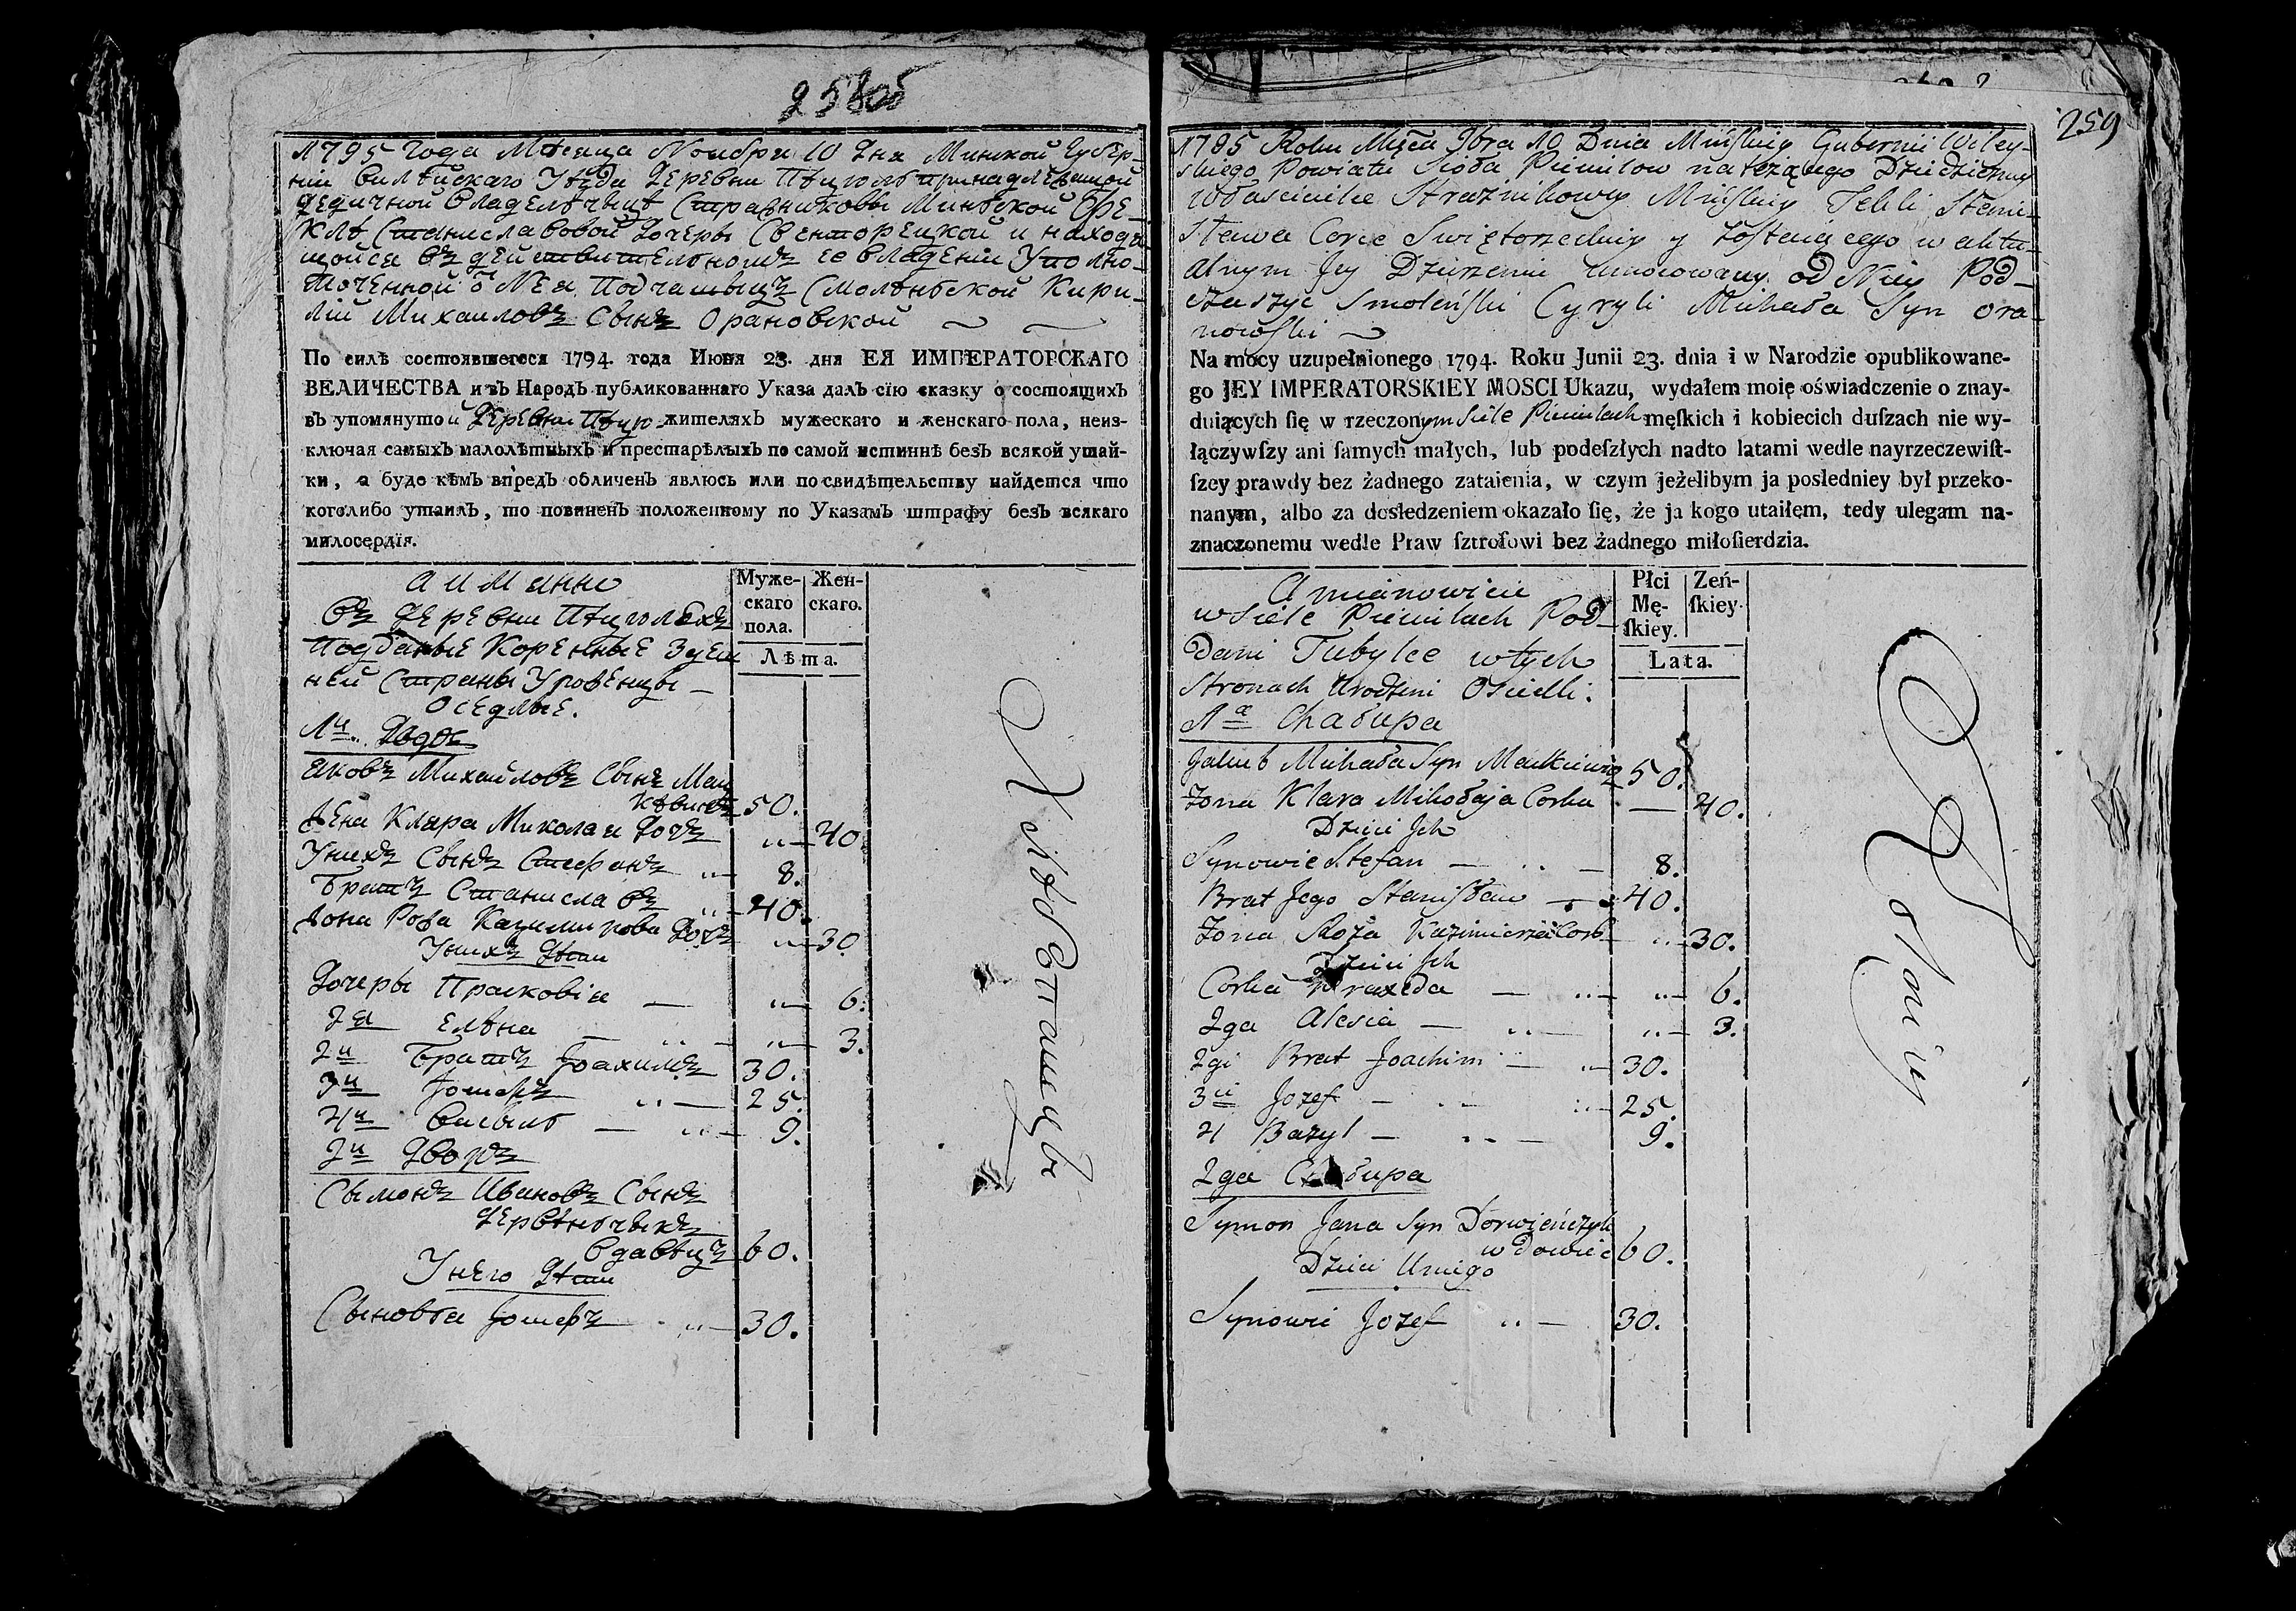 258об
1795 года Мѣсяца Ноября 10 дня Минской Губер-
ніи Вилѣйскаго Уѣзда Деревни принадлежащой
дедичной Владельчыцѣ Стражниковы Минской Фе-
клѣ Станиславовой дочеры Свенторецкой и находя
щойся въ действительномъ ее владеніи Уполно-
моченной о Нея Подчашыцъ Смоленской Кири-
лій Михаиловъ Сынъ Орановской
По силѣ состоявшегося 1794. года Июня 23. дня ЕЯ ИМПЕРАТОРСКАГО
ВЕЛИЧЕСТВА и въ Народъ публикованнаго Указа далъ сїю сказку о состоящихъ
въ упомянутой Деревни жителяхъ мужескаго и женскаго пола, неиз-
ключая самыхъ малолѣтныхъ и престарѣлыхъ по самой истиннѣ безъ всякой утай-
ки, а буде кѣмъ впредь обличенъ явлюсь или по свидѣтельству найдется что
коголибо утаилъ, то повиненъ положенному по Указамъ штрафу безъ всякаго
милосердїя.
а имянно
Въ деревни
Подданые Коренные Здеш
ней Страны Уроженцы
Оседлые.
Муже-
скаго
пола.
Жен-
скаго.
Лѣта.
1й Дворъ
Яковъ Михайловъ Сынъ Мац
кѣвичъ 50.
Жена Клара Миколая дочь 40
Унихъ Сынъ Стефанъ 8.
Братъ Станиславъ 40.
Жона Рожа Казимирова Дочь 30
Унихъ Дѣти
Дочеры Прасковія 6.
2я Елѣна 3.
2й Братъ Іоахимъ 30.
3й Іошефъ 25.
4й Василь 9.
2й Дворъ
Сымонъ Ивановъ Сынъ
Дервѣньчыкъ
Вдавецъ 60.
Унего Дѣти
Сыновья Іошефъ 30.
Хлѣбопашцы
259
1795 Roku Mięca 9bra 10 Dnia Mińskiey Gubernii Wiley-
skiego Powiatu Sioła należącego Dziedziczney
Właścicielce Strażnikowey Mińskiey Tekli Stani-
sława Corce Swiętorzeckiey y zostaiącego w aktu-
alnym Jey Dzierżeniu umocowany od Niey Pod-
czaszyc Smoleński Cyryli Michała Syn Ora-
nowski
Na mocy uzupełnionego 1794. Roku Junii 23. dnia i w Narodzie opublikowane-
go JEY IMPERATORSKIEY MOSCI Ukazu, wydałem moię oświadczenie o znay-
duiących ſię w rzeczonym Siele męſkich i kobiecich duſzach nie wy-
łączywſzy ani ſamych małych, lub podeſzłych nadto latami wedle nayrzeczewiſt-
ſzey prawdy bez żadnego zataienia, w czym jeżelibym ja posledniey był przeko-
nanym, albo za dosledzeniem okazało ſię, że ja kogo utaiłęm, tedy ulegam na-
znaczonemu wedle Praw ſztroſowi bez żadnego miłoſierdzia.
A mianowicie
w Siele Pod-
dani Tubylce w tych
Stronach Urodzeni Osiedli:
Płci
Mę-
ſkiey.
Zeń-
ſkiey.
Lata.
1a Chałupa
Jakub Michała Syn Mackiewicz 50.
Zona Klara Mikołaja Corka 40.
Dzieci Jch
Synowie Stefan 8.
Brat Jego Stanisław 40.
Zona Roża Kazimierza Cork 30.
Dzieci Jch
Corka Praxeda 6.
2ga Alesia 3.
2gi Brat Joachim 30.
3ci Jozef 25.
4 Bazyl 9.
2ga Chałupa
Symon Jana Syn Dorwieńczyk
wdowiec 60.
Dzieci Uniego
Synowie Jozef 30.